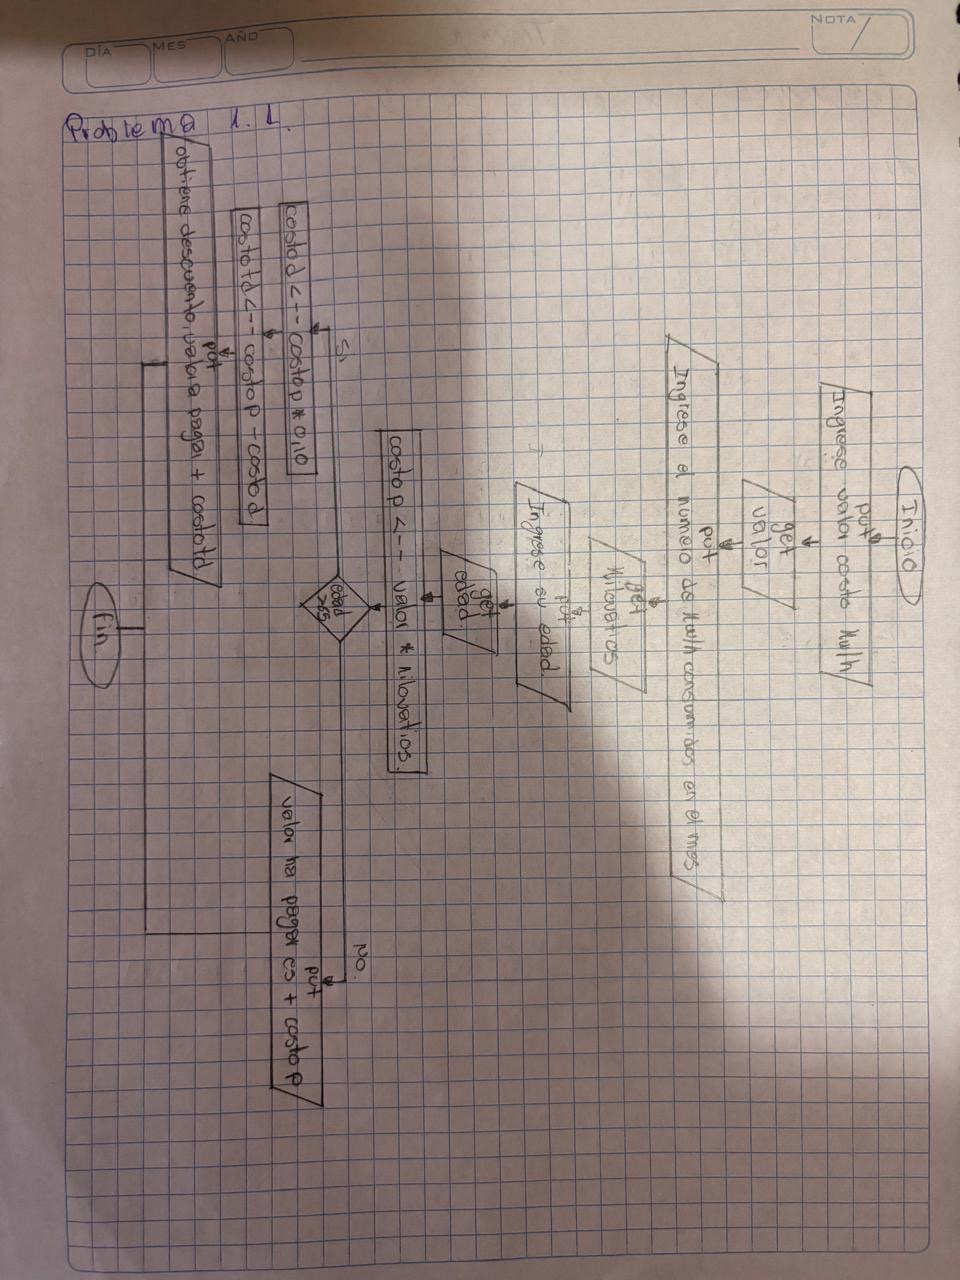 DÍA MES AÑO
NOTA
Problema 1.1.
Inicio
put
Ingrese valor costo Kw/h
get
valor
put
Ingrese el numero de Kw/h consumidos en el mes
get
Kilovatios
put
Ingrese su edad.
get
edad
costo p <-- valor * kilovatios.
edad
>65
SI
NO.
costo d <-- costo p * 0,10
costo td <-- costo p - costo d
put
obtiene descuento, valor a pagar + costo td
put
valor ha pagar es + costo p
fin